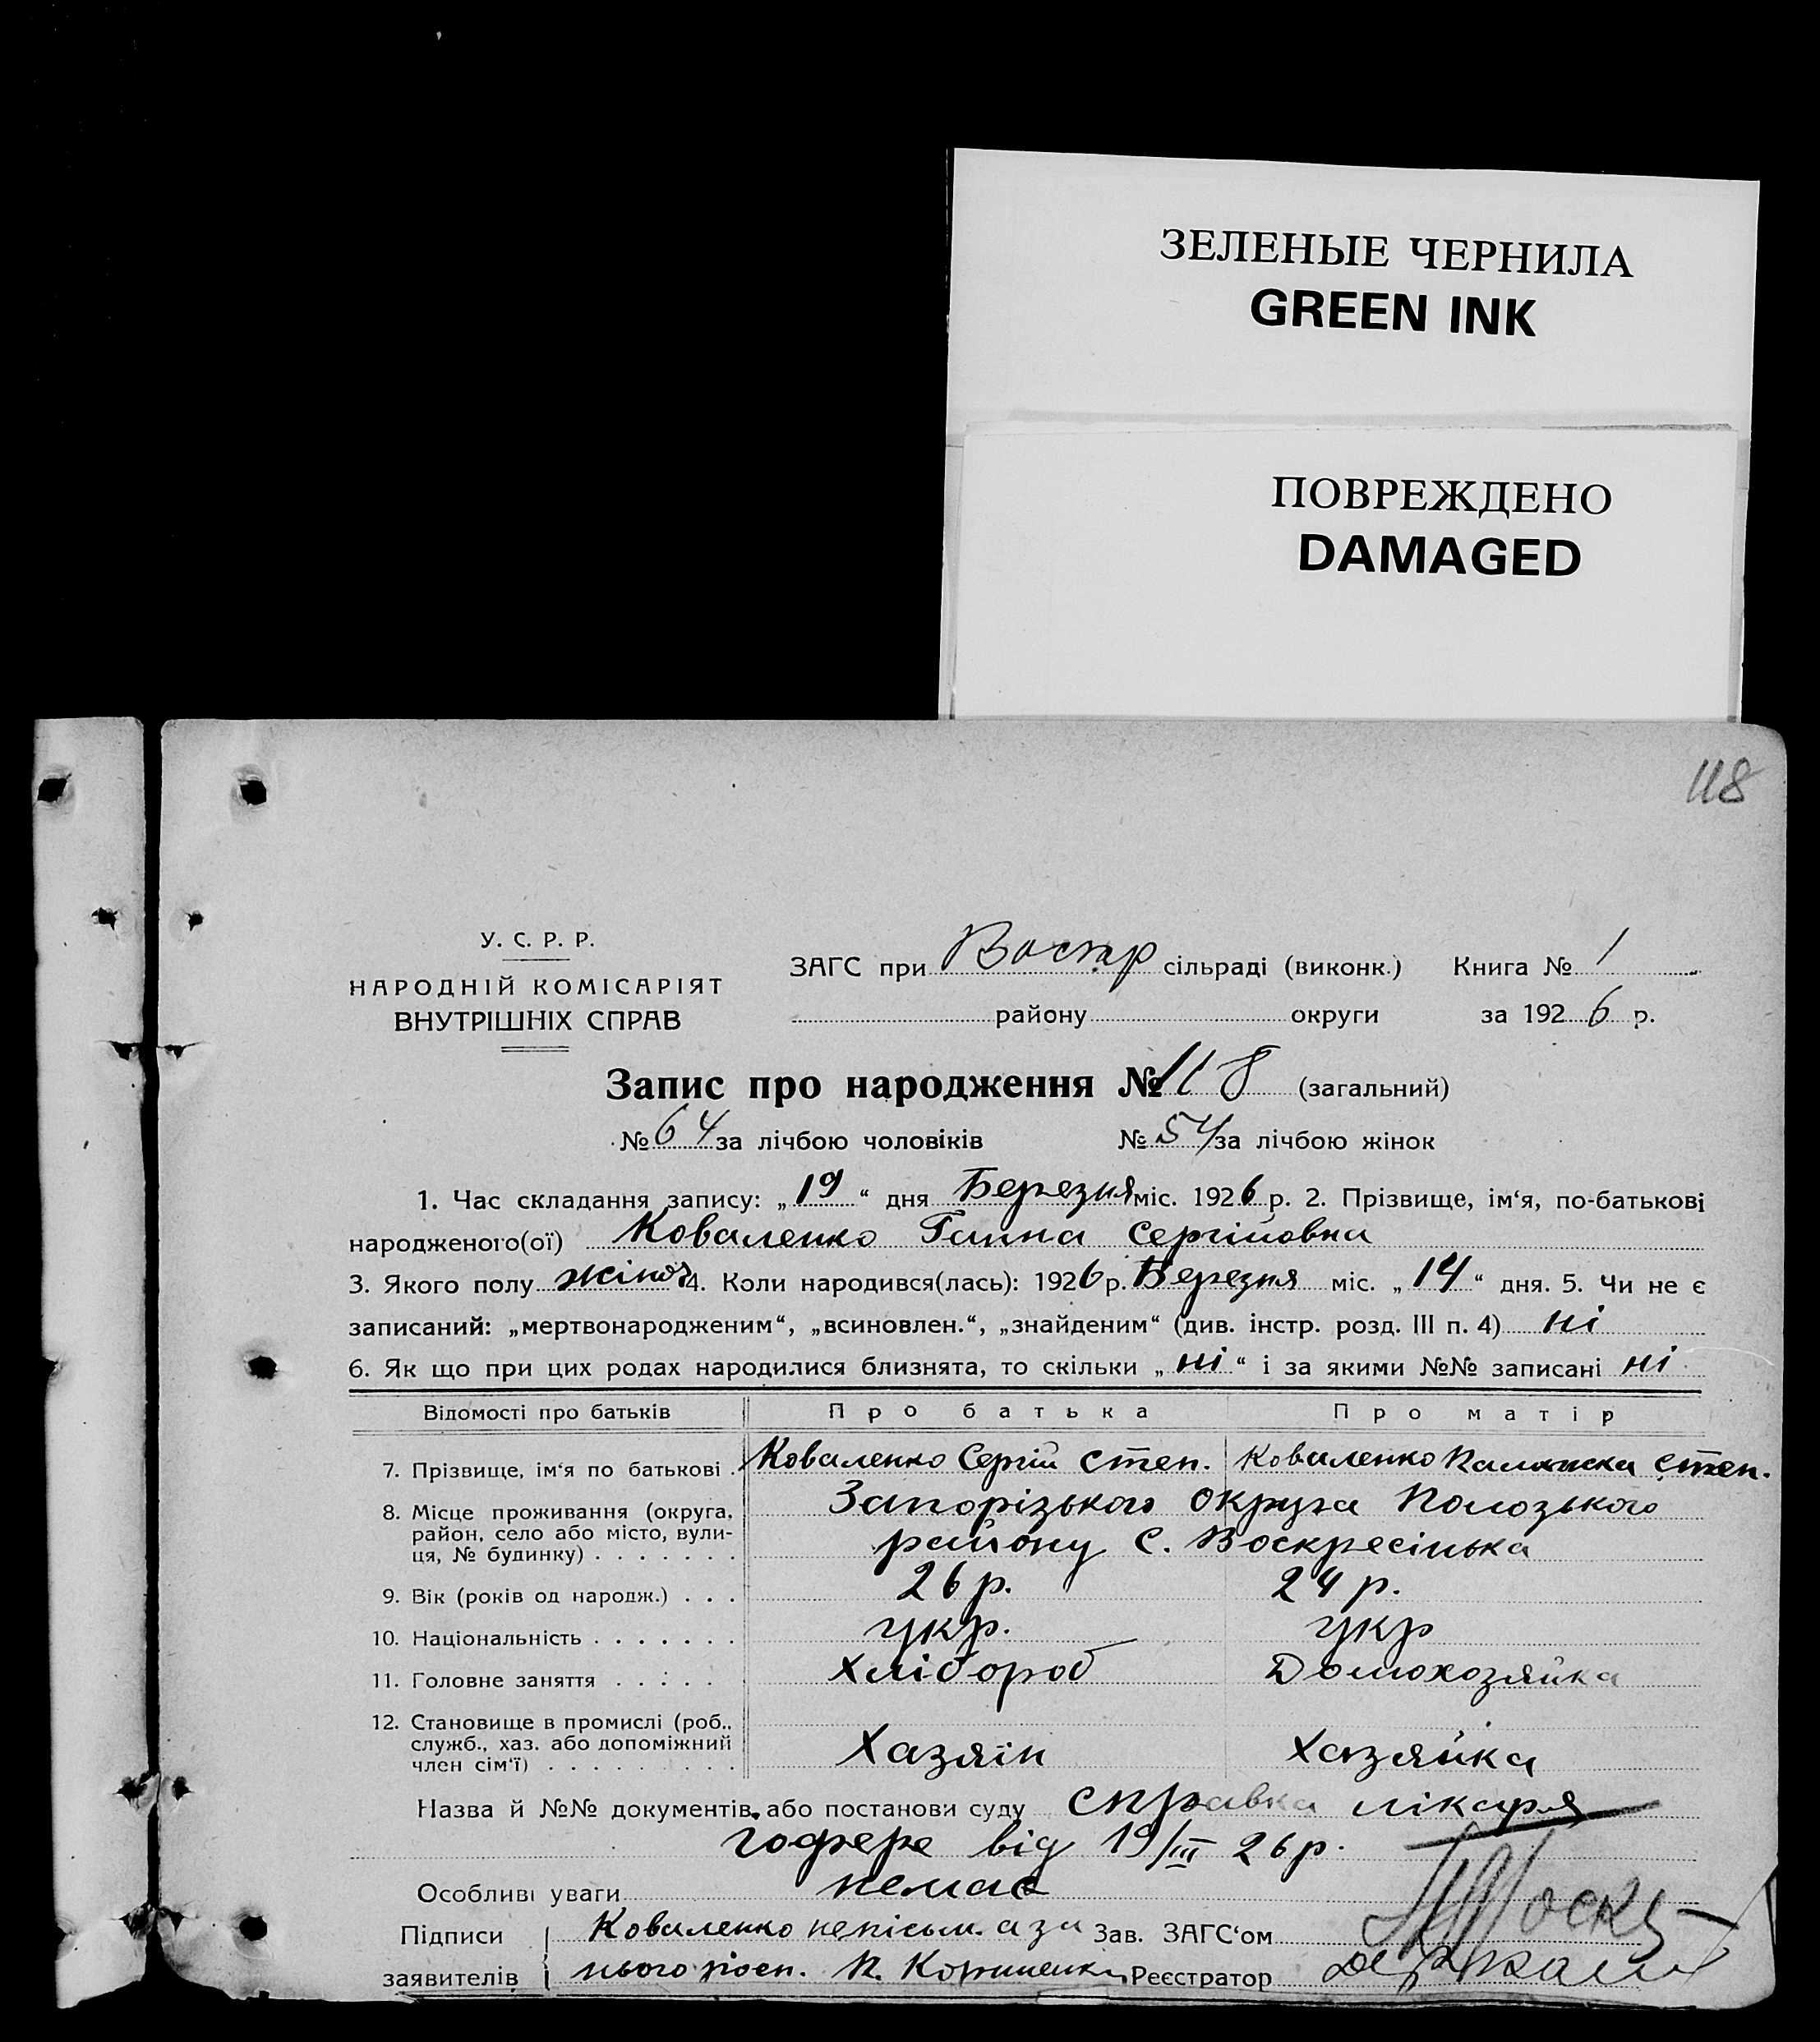 ЗЕЛЕНЫЕ ЧЕРНИЛА
GREEN INK
ПОВРЕЖДЕНО
DAMAGED
118
У. С. Р. Р.
НАРОДНІЙ КОМІСАРІЯТ
ВНУТРІШНІХ СПРАВ
ЗАГС при Воскр сільраді (виконк.) Книга № 1
району округи за 1926 р.
Запис про народження № 118 (загальний)
№ 64 за лічбою чоловіків № 54 за лічбою жінок
1. Час складання запису: „19“ дня Березня міс. 1926 р. 2. Прізвище, ім‘я, по-батькові
народженого(ої) Коваленко Ганна Сергійовна
3. Якого полу жіноч 4. Коли народився(лась): 1926 р. Березня міс. „14“ дня. 5. Чи не є
записаний: „мертвонародженим“, „всиновлен.“, „знайденим“ (див. інстр. розд. III п. 4) ні
6. Як що при цих родах народилися близнята, то скільки „ні“ і за якими №№ записані ні
Відомості про батьків Про батька Про матір
7. Прізвище, ім‘я по батькові . Коваленко Сергій Степ. Коваленко Степ.
8. Місце проживання (округа, Запорізького округа Полозького
район, село або місто, вули-
ця, № будинку) . . . . . . . району с. Воскресінька
9. Вік (років од народж.) . . . 26 р. 24 р.
10. Національність . . . . . . . укр. укр
11. Головне заняття . . . . . Хлібороб Домохозяйка
12. Становище в промислі (роб..
служб., хаз. або допоміжний Хазяїн Хазяйка
член сім‘ї) . . . . . . . . .
Назва й №№ документів або постанови суду справка лікаря
від 19/III 26 р.
Особливі уваги немає
Підписи Коваленко непісьм. а за Зав. ЗАГС‘ом
заявителів нього росп. К. Реєстратор